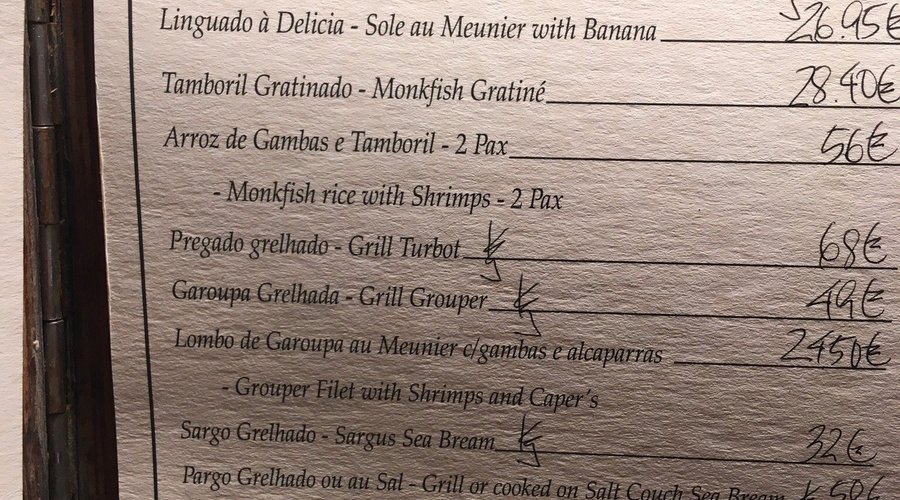 Linguado à Delicia - Sole au Meunier with Banana 26.95€
Tamboril Gratinado - Monkfish Gratiné 28.40€
Arroz de Gambas e Tamboril - 2 Pax 56€
- Monkfish rice with Shrimps - 2 Pax
Pregado grelhado - Grill Turbot kg 68€
Garoupa Grelhada - Grill Grouper kg 49€
Lombo de Garoupa au Meunier c/gambas e alcaparras 2450€
- Grouper Filet with Shrimps and Caper's
Sargo Grelhado - Sargus Sea Bream kg 32€
Pargo Grelhado ou au Sal - Grill or cooked on Salt Couch Sea Bream